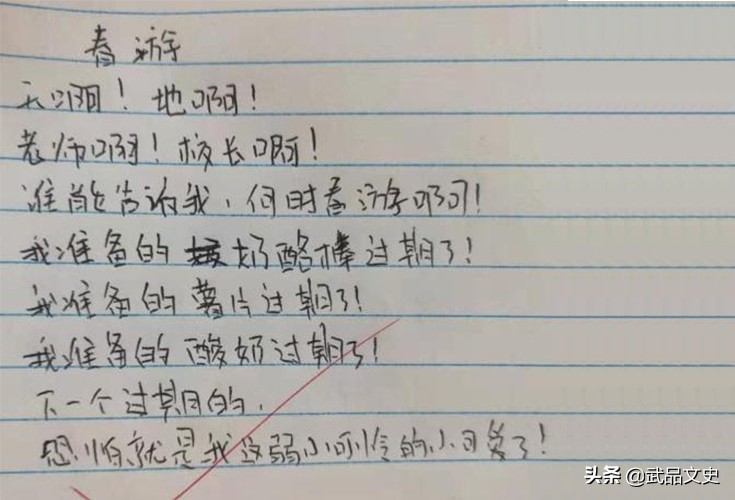 春游
天啊！地啊！
老师啊！校长啊！
谁能告诉我，何时春游啊！
我准备的奶酪棒过期了！
我准备的薯片过期了！
我准备的酸奶过期了！
下一个过期的，
恐怕就是我这弱小可怜的小可爱了！
头条 @武品文史